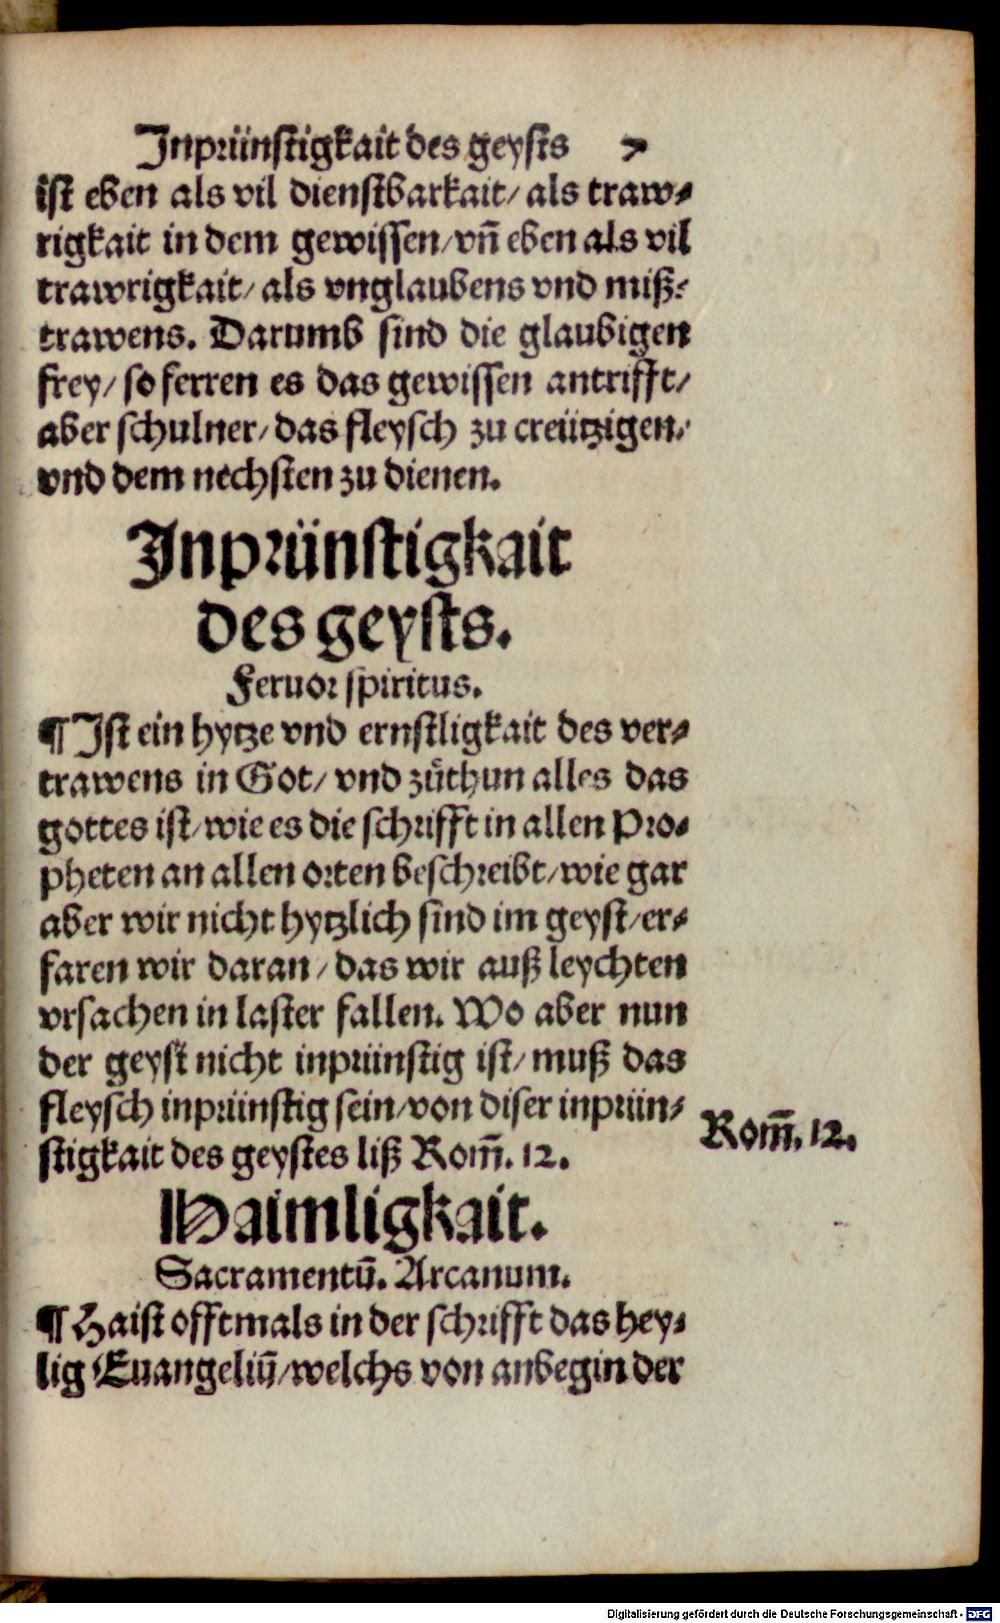 Inprünstigkait des geysts 7
ist eben als vil dienstbarkait/ als traw⸗
rigkait in dem gewissen/ vñ eben als vil
trawrigkait/ als vnglaubens vnd miß⸗
trawens. Darumb sind die glaubigen
frey/ so ferren es das gewissen antrifft/
aber schulner/ das fleysch zu creützigen/
vnd dem nechsten zu dienen.
Inprünstigkait
des geysts.
Feruor spiritus.
¶ Ist ein hytze vnd ernstligkait des ver⸗
trawens in Got/ vnd zůthun alles das
gottes ist/ wie es die schrifft in allen Pro⸗
pheten an allen orten beschreibt/ wie gar
aber wir nicht hytzlich sind im geyst/ er⸗
faren wir daran/ das wir auß leychten
vrsachen in laster fallen. Wo aber nun
der geyst nicht inprünstig ist/ muß das
fleysch inprünstig sein/ von diser inprün⸗
stigkait des geystes liß Rom̃. 12.
Rom̃. 12.
Haimligkait.
Sacramentū. Arcanum.
¶ Haist offtmals in der schrifft das hey⸗
lig Euangeliū/ welchs von anbegin der
Digitalisierung gefördert durch die Deutsche Forschungsgemeinschaft - DFG